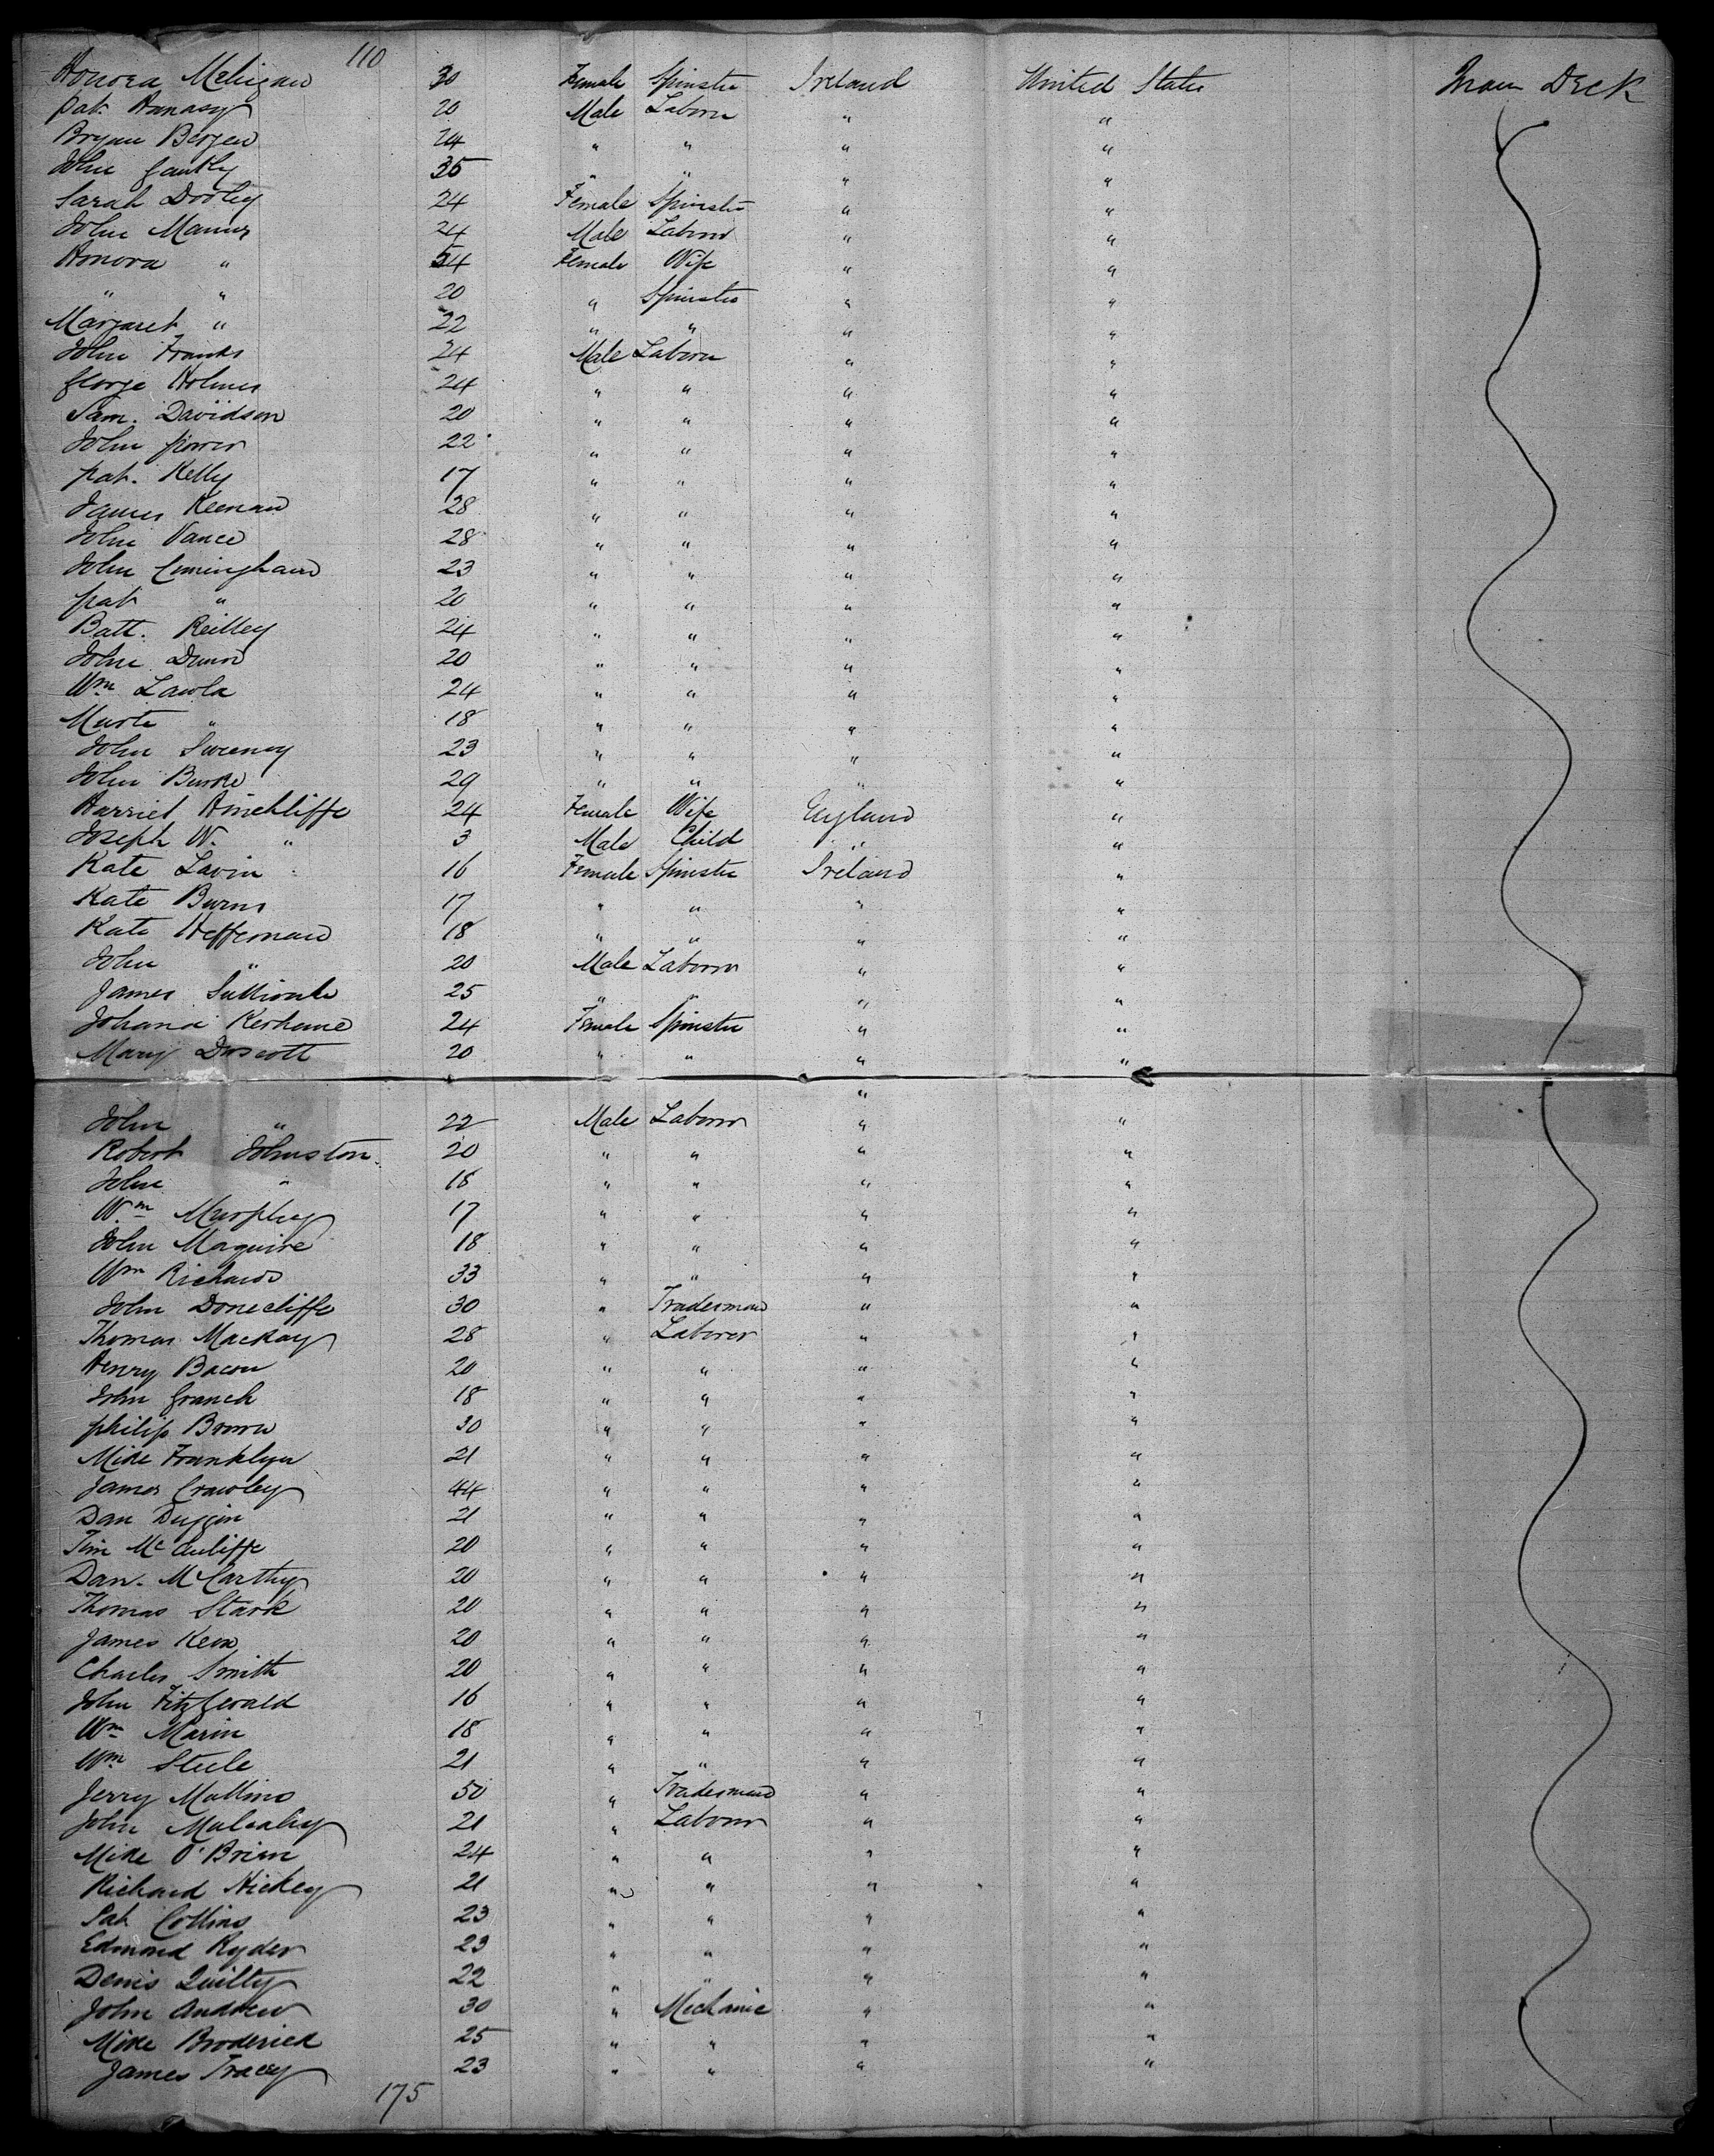 110
Honora Mehigan 30 Female Spinster Ireland United States Main Deck
Pat. 20 Male Laborer " "
Bryan Bergen 24 " " " "
John 35 " " " "
Sarah Dooley 24 Female Spinster " "
John Mannix 24 Male Laborer " "
Honora " 54 Female Wife " "
" " 20 " Spinster " "
Margaret " 22 " " " "
John Franks 24 Male Laborer " "
George Holmes 24 " " " "
Sam. Davidson 20 " " " "
John Power 22 " " " "
Pat. Kelly 17 " " " "
James Keenan 28 " " " "
John Vance 28 " " " "
John Cuningham 23 " " " "
Pat " 20 " " " "
Batt. Reilley 24 " " " "
John Dunn 20 " " " "
Wm Lawla 24 " " " "
Murte " 18 " " " "
John Sweeney 23 " " " "
John Burke 29 " " " "
Harriet Hinchliffe 24 Female Wife England "
Joseph W. " 3 Male Child " "
Kate Lavin 16 Female Spinster Ireland "
Kate Burns 17 " " " "
Kate Heffernan 18 " " " "
John " 20 Male Laborer " "
James 25 " " " "
Johana 24 Female Spinster " "
Mary 20 " " " "
"
John " 22 Male Laborer " "
Robert Johnston 20 " " " "
John " 18 " " " "
Wm Murphy 17 " " " "
John Maguire 18 " " " "
Wm Richards 33 " " " "
John Donecliffe 30 " Tradesman " "
Thomas Mackay 28 " Laborer " "
Henry Bacon 20 " " " "
John 18 " " " "
Philip Brown 30 " " " "
Mike Franklyn 21 " " " "
James Crowley 44 " " " "
Dan Duggin 21 " " " "
Tim McAuliffe 20 " " " "
Dan. McCarthy 20 " " " "
Thomas Stark 20 " " " "
James 20 " " " "
Charles Smith 20 " " " "
John FitzGerald 16 " " " "
Wm Marin 18 " " " "
Wm Steele 21 " " " "
Jerry Mullins 50 " Tradesman " "
John Mulcahy 21 " Laborer " "
Mike O'Brien 24 " " " "
Richard Hickey 21 " " " "
Pat Collins 23 " " " "
Edmond Ryder 23 " " " "
Denis Quilty 22 " " " "
John Andrew 30 " Mechanic " "
Mike Broderick 25 " " " "
James Tracey 23 " " " "
175